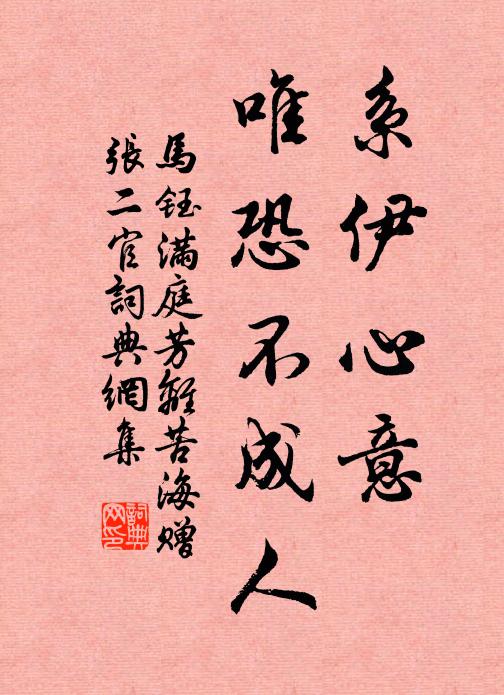 系伊心意
唯恐不成人
馬鈺滿庭芳離苦海贈
張二官詞典網集
詞典網印